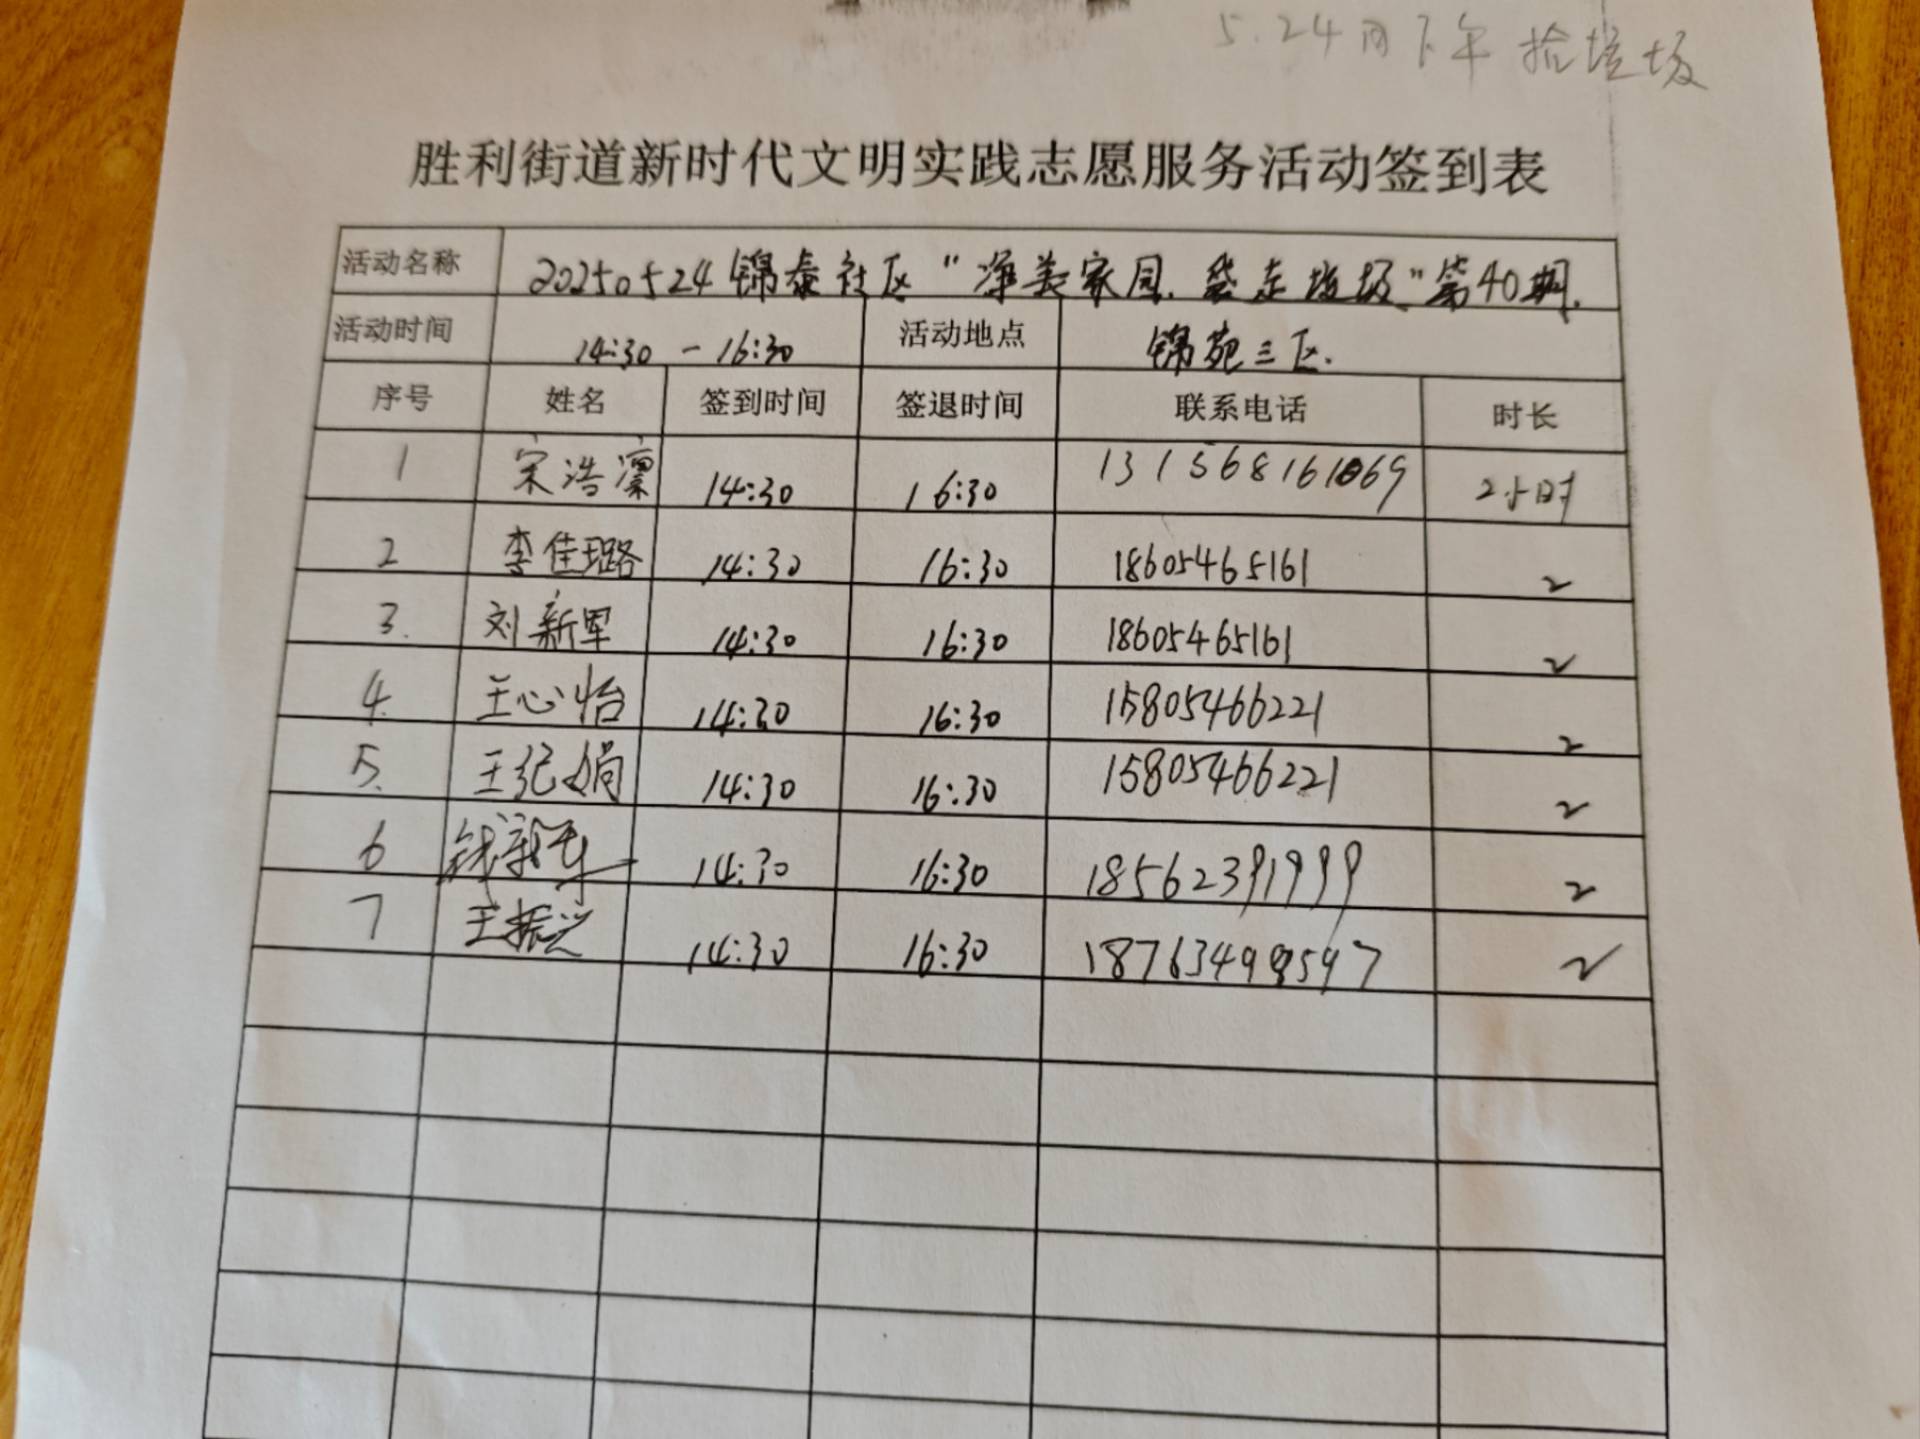 5.24日下午 捡垃圾
胜利街道新时代文明实践志愿服务活动签到表
活动名称 20250524锦泰社区"净美家园.袋走垃圾"第40期.
活动时间 14:30 - 16:30 活动地点 锦苑三区.
序号 姓名 签到时间 签退时间 联系电话 时长
1 宋浩凛 14:30 16:30 2小时
2 李佳璐 14:30 16:30 18605465161 2
3. 刘新军 14:30 16:30 18605465161 2
4. 王心怡 14:30 16:30 15805466221 2
5. 王纪娟 14:30 16:30 15805466221 2
6 14:30 16:30 18562391999 2
7 王振兴 14:30 16:30 2